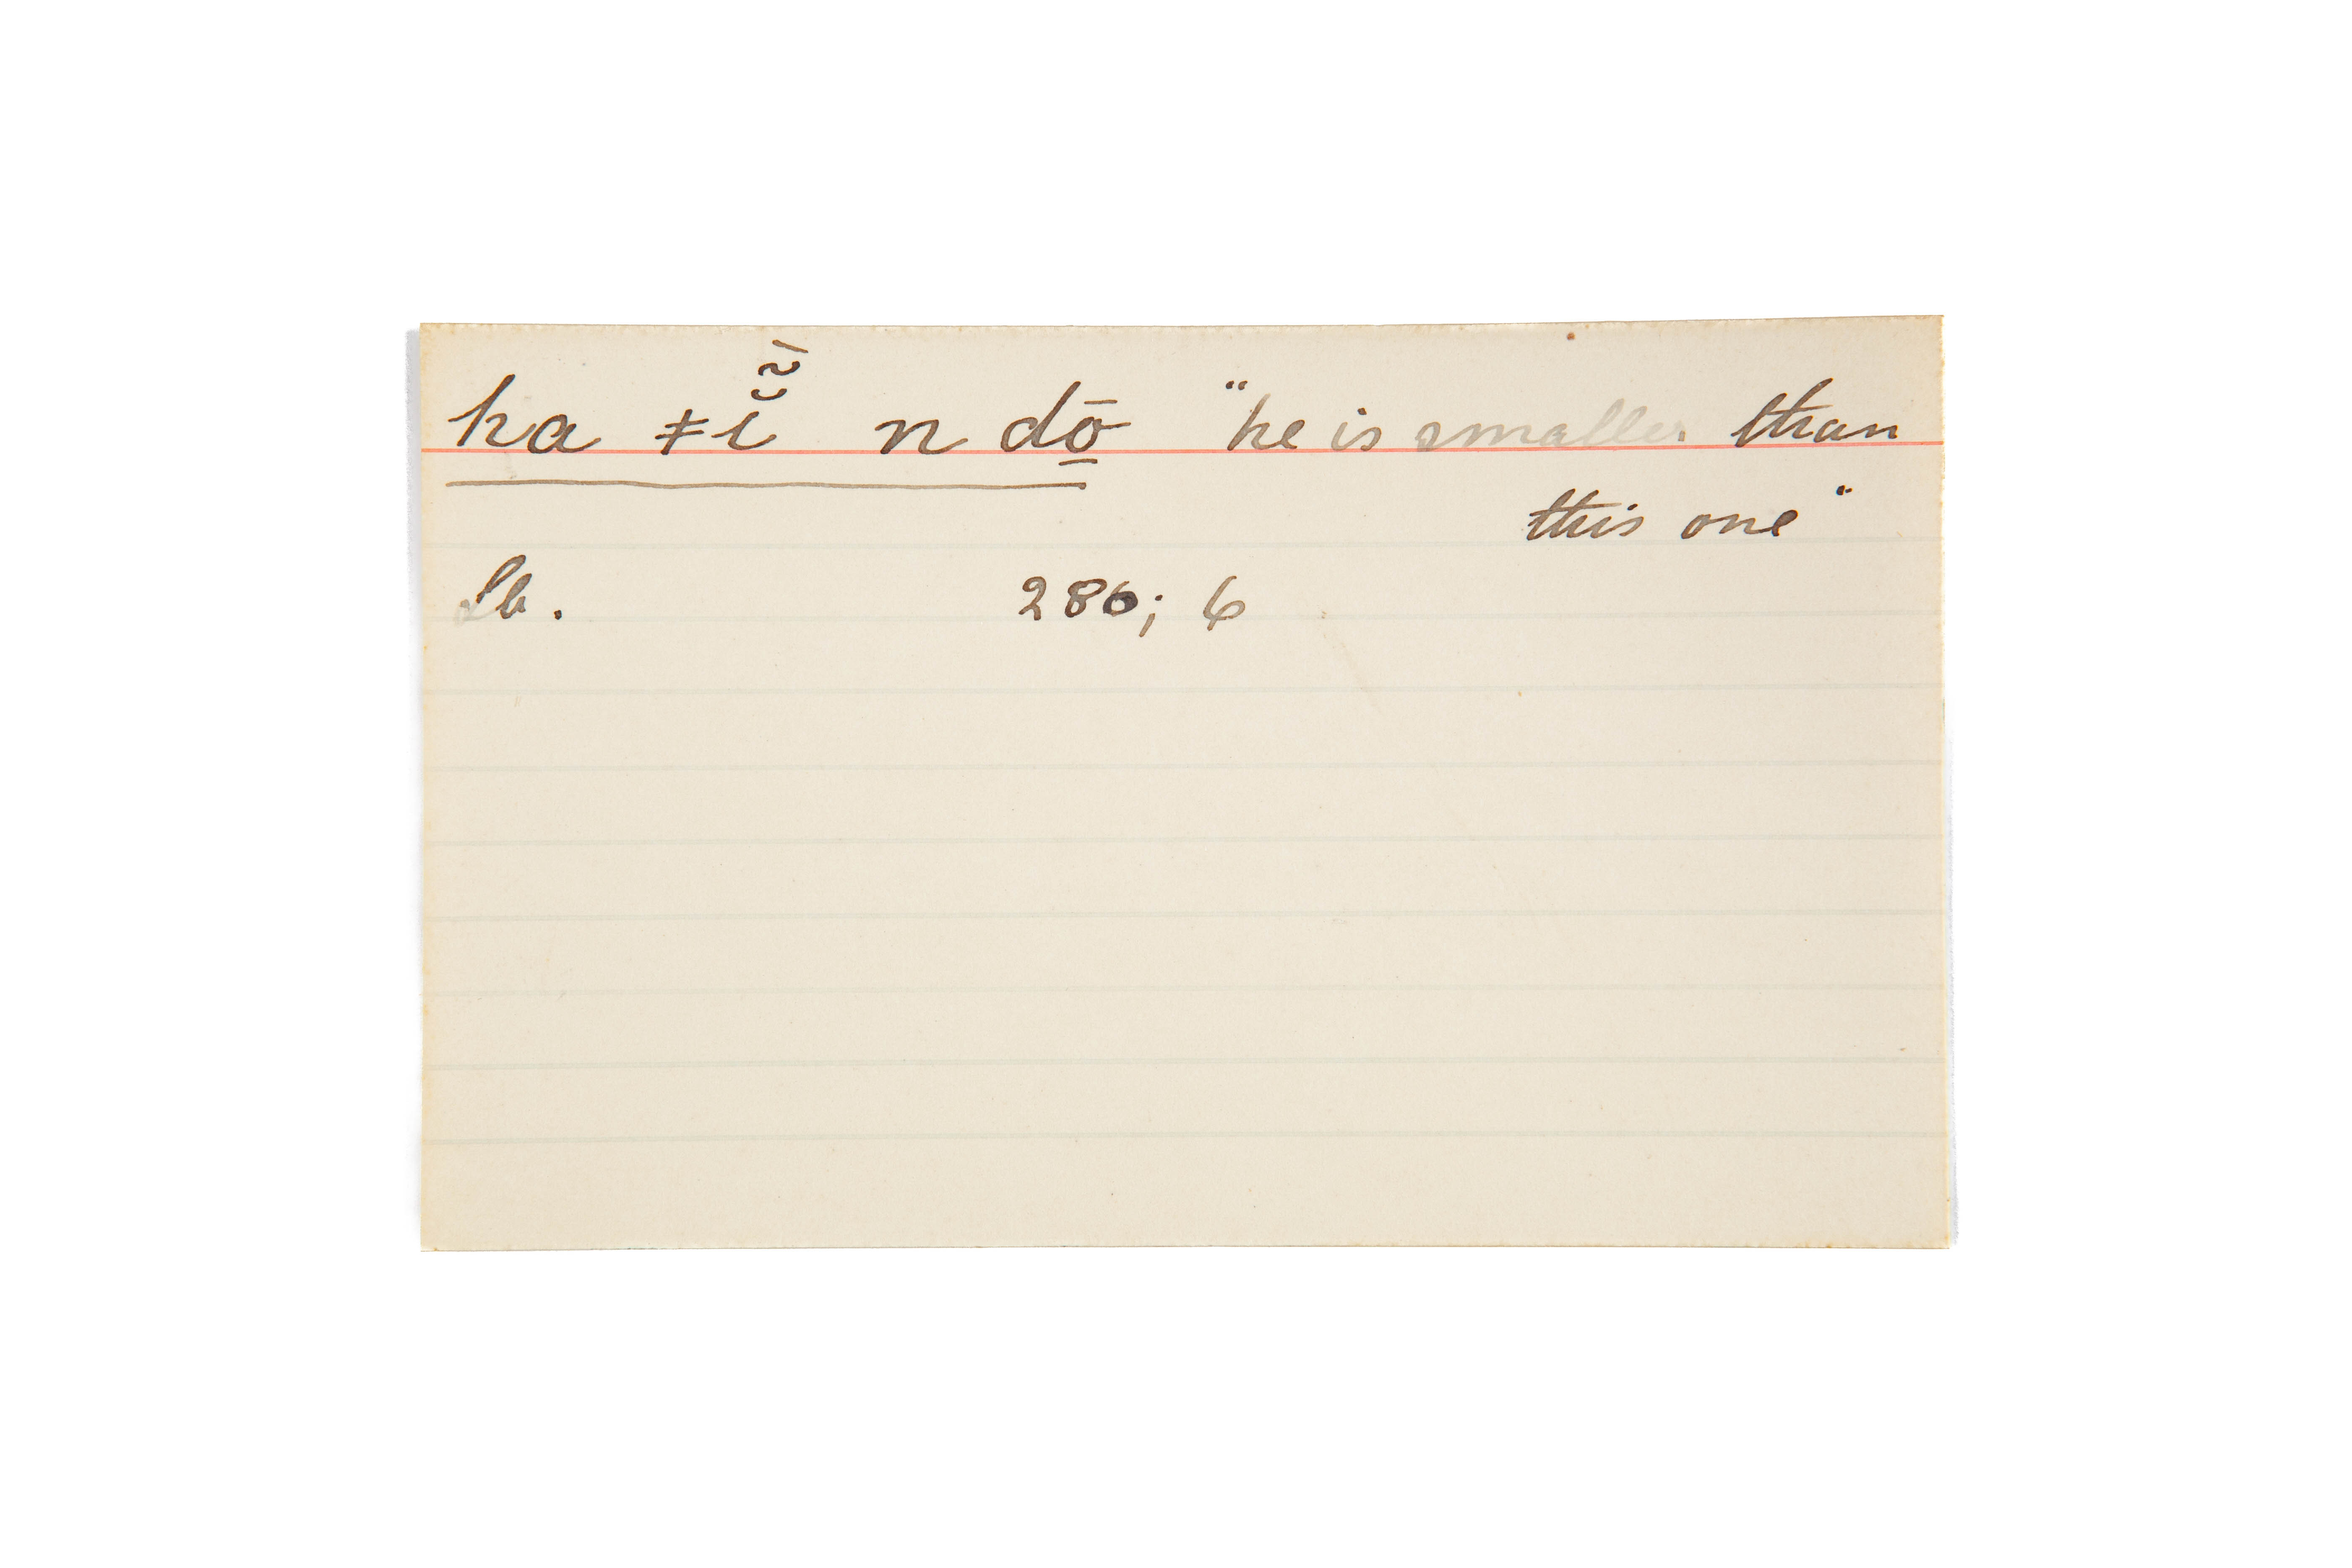 ha ǂĭ̃́ n dō̠ "he is smaller than
this one"
Lb. 286; 6